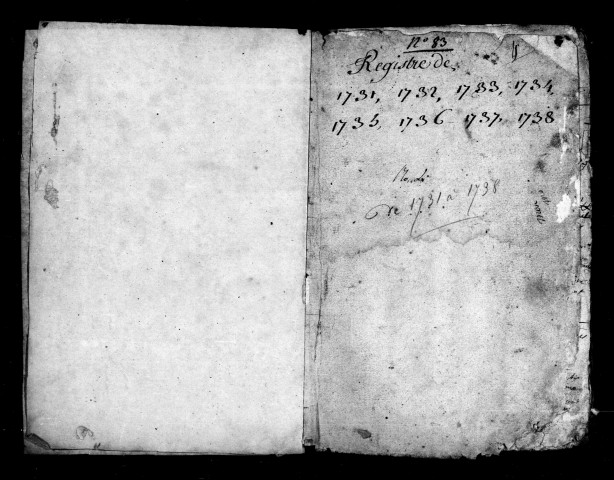 N° 83
Registre de
1731, 1732, 1733, 1734,
1735, 1736 1737, 1738
de 1731 a 1738